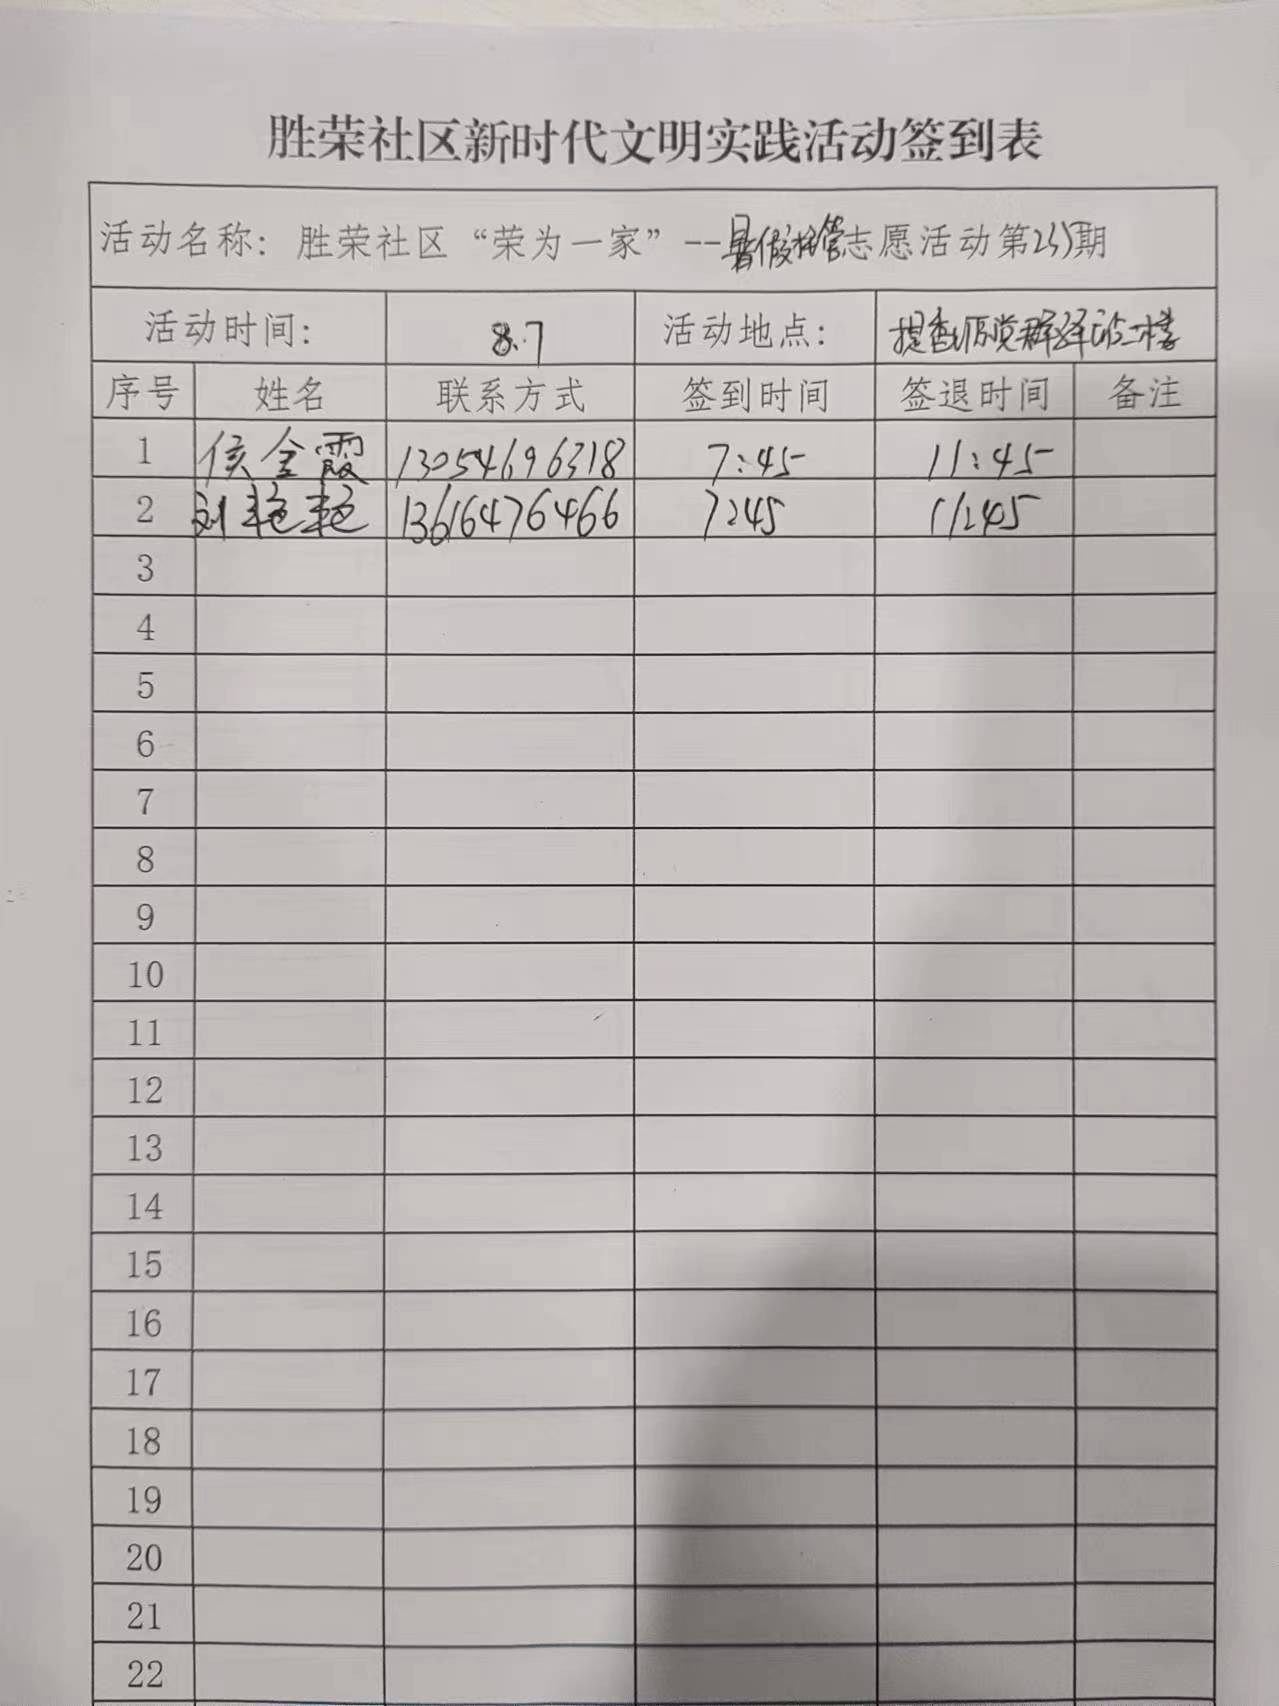 胜荣社区新时代文明实践活动签到表
活动名称：胜荣社区“荣为一家”--暑假托管志愿活动第期
活动时间： 8.7 活动地点： 党群 二楼
序号 姓名 联系方式 签到时间 签退时间 备注
1 侯金霞 13054696318 7:45 11:45
2 刘艳艳 13616476466 7:45 11:45
3
4
5
6
7
8
9
10
11
12
13
14
15
16
17
18
19
20
21
22